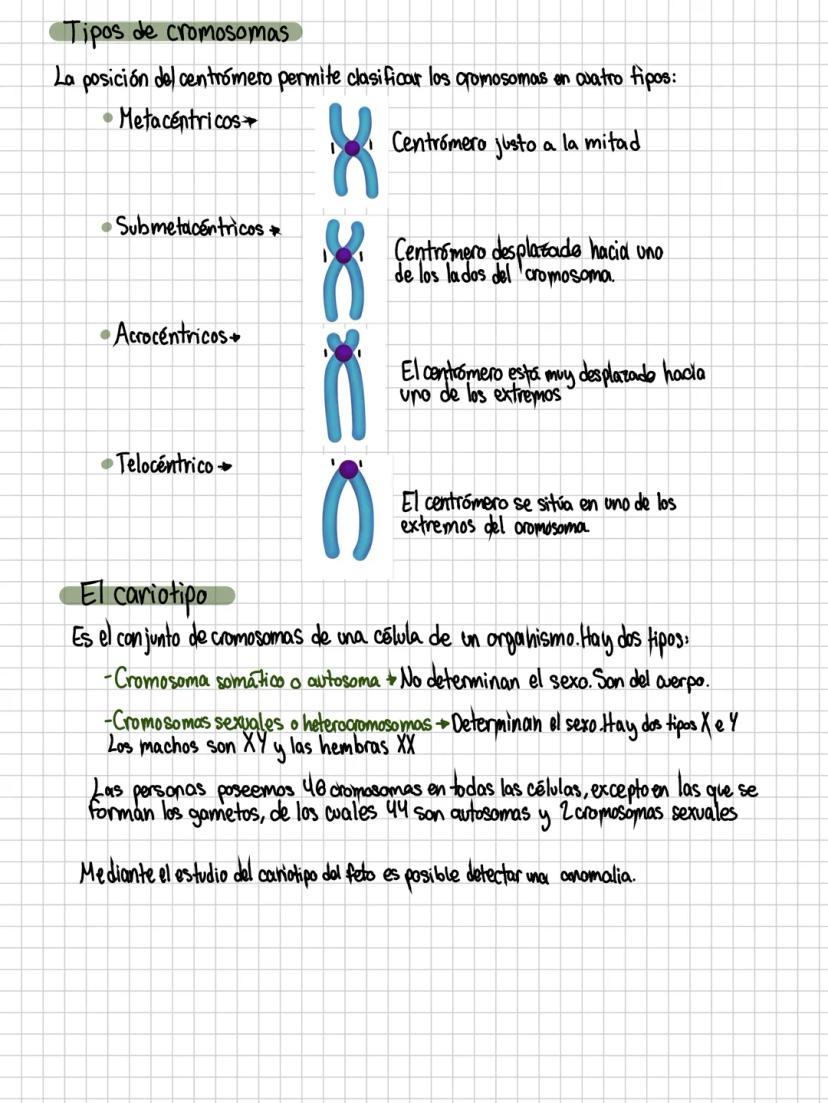 Tipos de cromosomas
La posición del centrómero permite clasificar los cromosomas en cuatro tipos:
• Metacéntricos→
Centrómero justo a la mitad
• Submetacéntricos→
Centrómero desplazado hacia uno
de los lados del cromosoma.
• Acrocéntricos→
El centómero está muy desplazado hacia
uno de los extremos
• Telocéntrico→
El centrómero se sitúa en uno de los
extremos del cromosoma.
El cariotipo
Es el conjunto de cromosomas de una célula de un organismo. Hay dos tipos:
-Cromosoma somático o autosoma→No determinan el sexo. Son del cuerpo.
-Cromosomas sexuales o heterocromosomas→Determinan el sexo. Hay dos tipos X e Y
Los machos son XY y las hembras XX
Las personas poseemos 46 cromosomas en todas las células, excepto en las que se
forman los gametos, de los cuales 44 son autosomas y 2 cromosomas sexuales
Mediante el estudio del cariotipo del feto es posible detectar una anomalia.